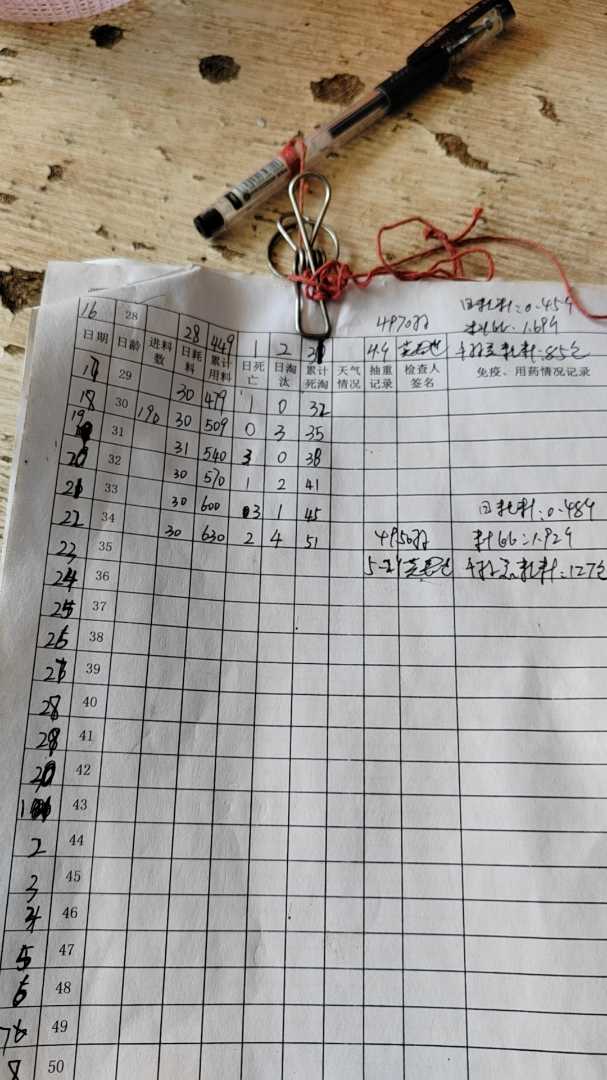 4970羽 日耗料:0.454
料比:1.684
16 28 28 449 1 2 31 4.4 千羽总耗料:85包
日期 日龄 进料数 日耗料 累计用料 日死亡 日淘汰 累计死淘 天气情况 抽重记录 检查人签名 免疫、用药情况记录
17 29 30 479 1 0 32
18 30 190 30 509 0 3 35
19 31 31 540 3 0 38
20 32 30 570 1 2 41
21 33 30 600 3 1 45 日耗料:0.484
22 34 30 630 2 4 51 4950羽 料比:1.924
23 35 千羽总耗料:127包
24 36
25 37
26 38
27 39
28 40
29 41
42
43
2 44
3 45
4 46
5 47
6 48
49
8 50